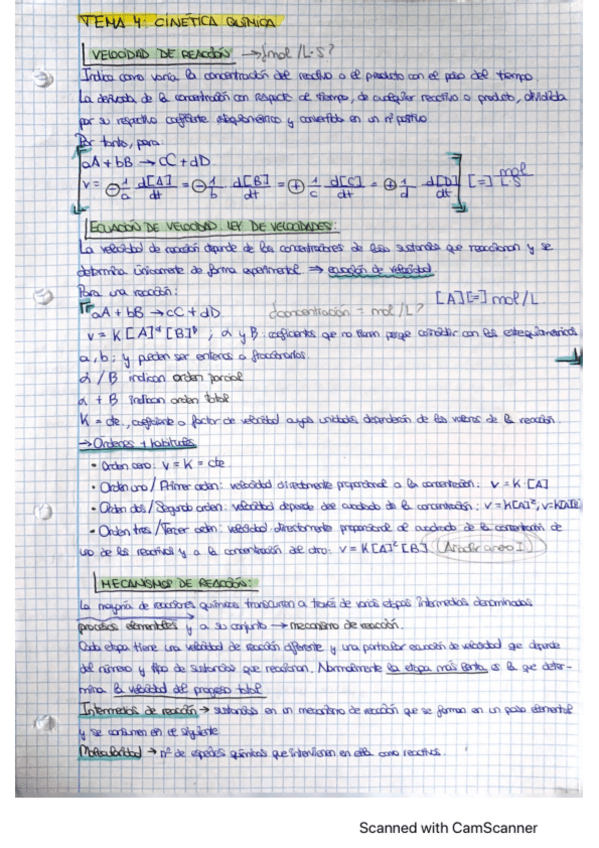 TEMA 4: CINÉTICA QUÍMICA
VELOCIDAD DE REACCIÓN → ¿mol/L·s?
Indica como varía la concentración del reactivo o el producto con el paso del tiempo.
La derivada de la concentración con respecto al tiempo, de cualquier reactivo o producto, dividida
por su respectivo coeficiente estequiométrico y convertida en un nº positivo
Por tanto, para:
aA + bB → cC + dD
v = ⊖ 1/a d[A]/dt = ⊖ 1/b d[B]/dt = ⊕ 1/c d[C]/dt = ⊕ 1/d d[D]/dt [=] mol/L·s
ECUACIÓN DE VELOCIDAD. LEY DE VELOCIDADES:
La velocidad de reacción depende de las concentraciones de las sustancias que reaccionan y se
determina únicamente de forma experimental → ecuación de velocidad
Para una reacción:
aA + bB → cC + dD ¿concentración = mol/L? [A][=] mol/L
v = K[A]^α [B]^β ; α y β: coeficientes que no tienen porqué coincidir con los estequiométricos
a, b; y pueden ser enteros o fraccionarios.
α / β indican orden parcial
α + β indican orden total
K = cte, coeficiente o factor de velocidad cuyas unidades dependerán de los valores de la reacción.
→ Ordenes + habituales
• Orden cero: v = K = cte
• Orden uno / Primer orden: velocidad directamente proporcional a la concentración: v = K·[A]
• Orden dos / Segundo orden: velocidad depende del cuadrado de la concentración: v = K[A]², v=K[A][B]
• Orden tres / Tercer orden: velocidad directamente proporcional al cuadrado de la concentración de
uno de los reactivos y a la concentración del otro: v = K[A]²[B]
MECANISMOS DE REACCIÓN:
La mayoría de reacciones químicas transcurren a través de varias etapas intermedias denominadas
procesos elementales y a su conjunto → mecanismo de reacción.
Cada etapa tiene una velocidad de reacción diferente y una particular ecuación de velocidad que depende
del número y tipo de sustancias que reaccionan. Normalmente la etapa más lenta es la que deter-
mina la velocidad del proceso total
Intermedios de reacción → sustancias en un mecanismo de reacción que se forman en un paso elemental
y se consumen en el siguiente
Molecularidad → nº de especies químicas que intervienen en ella como reactivos.
Scanned with CamScanner